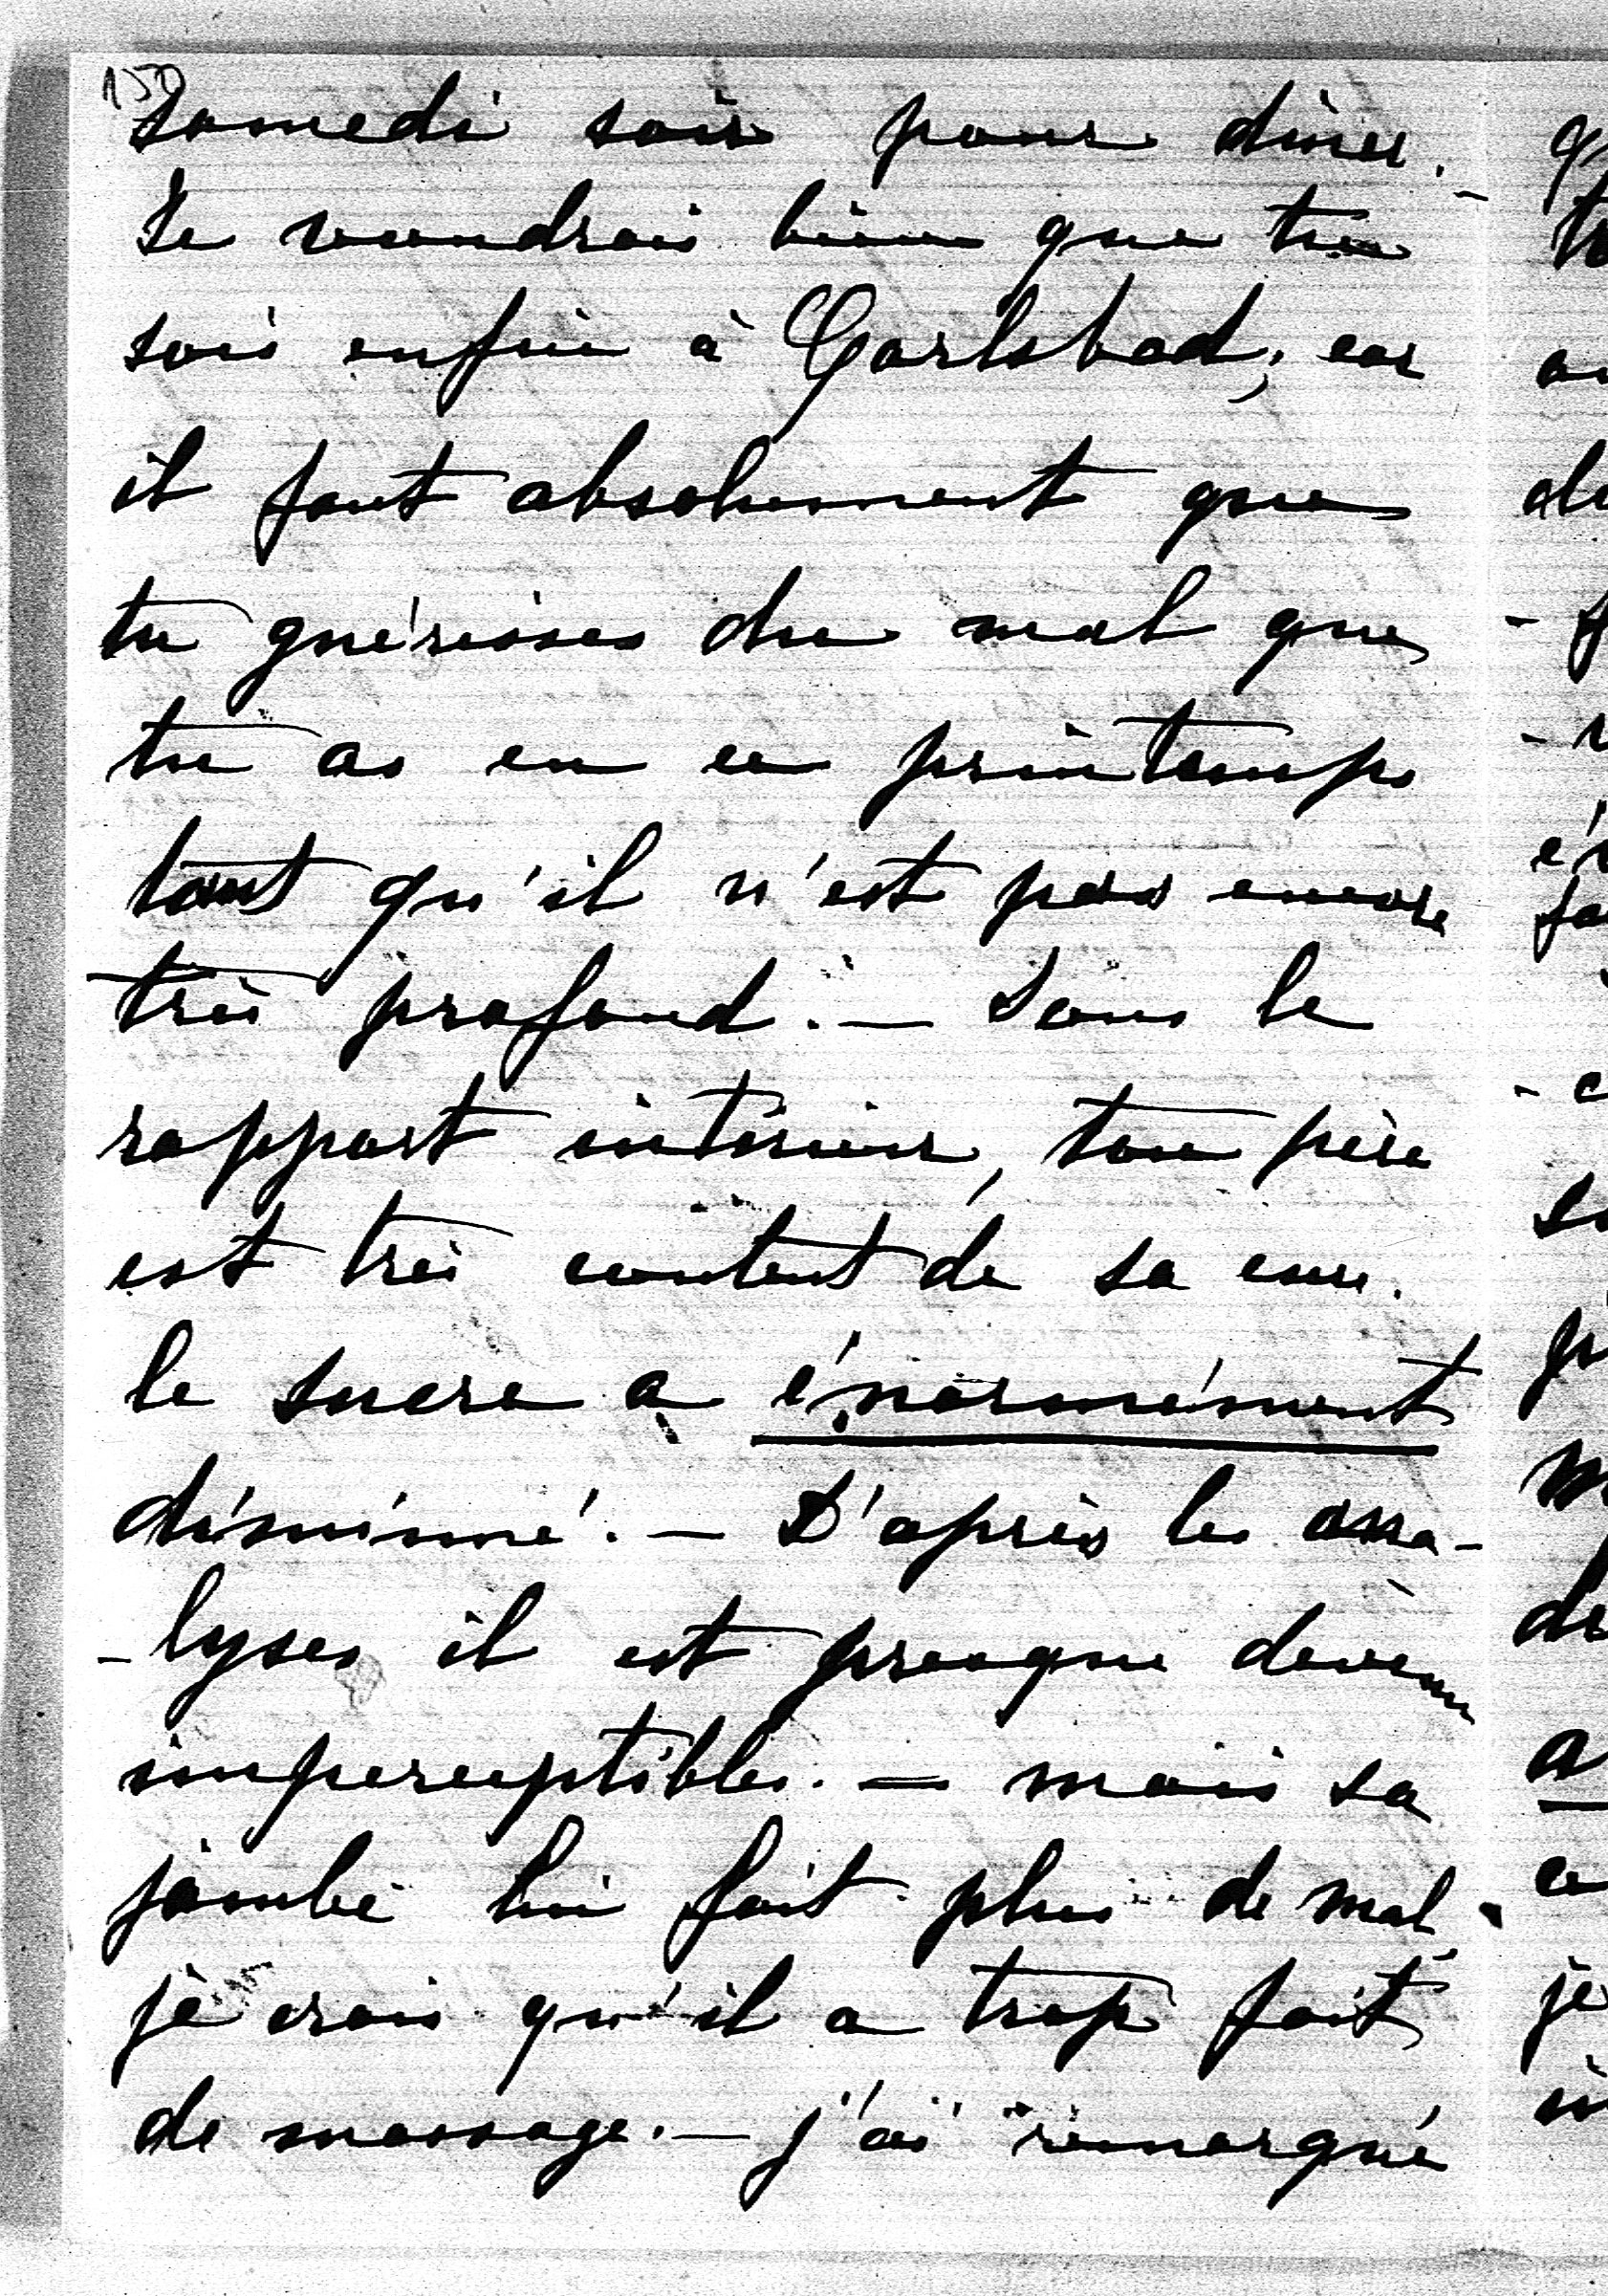 150
Samedi soir pour dîner. -
Je voudrais bien que tu
sois enfin à Carlsbad; car
il faut absolument que
tu guérisses du mal que
tu as eu ce printemps
tant qu'il n'est pas encore
très profond. — Sous le
rapport intérieur, ton père
est très content de sa cure.
le sucre a énormément
diminué. — D'après les ana-
-lyses il est presque devenu
imperceptible. — mais sa
jambe lui fait plus de mal.
je crois qu'il a trop fait
de massage. — j'ai remarqué